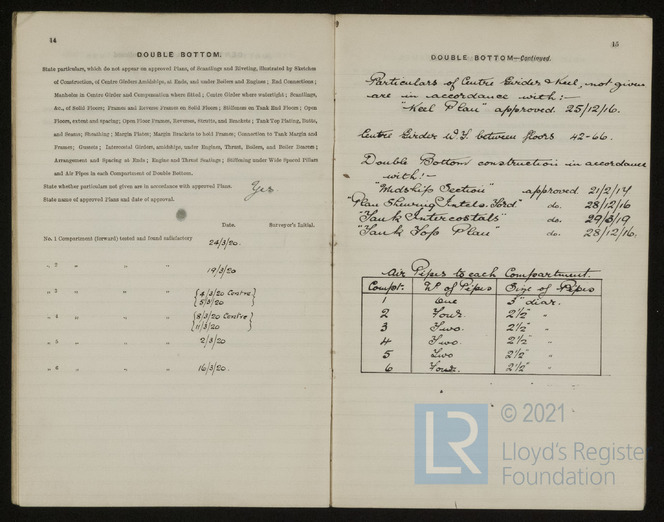 14
DOUBLE BOTTOM.
State particulars, which do not appear on approved Plans, of Scantlings and Riveting, illustrated by Sketches
of Construction, of Centre Girders Amidships, at Ends, and under Boilers and Engines; End Connections;
Manholes in Centre Girder and Compensation where fitted; Centre Girder where watertight; Scantlings,
&c., of Solid Floors; Frames and Reverse Frames on Solid Floors; Stiffeners on Tank End Floors; Open
Floors, extent and spacing; Open Floor Frames, Reverses, Struts, and Brackets; Tank Top Plating, Butts,
and Seams; Sheathing; Margin Plates; Margin Brackets to hold Frames; Connection to Tank Margin and
Frames; Gussets; Intercostal Girders, amidships, under Engines, Thrust, Boilers, and Boiler Bearers;
Arrangement and Spacing at Ends; Engine and Thrust Seatings; Stiffening under Wide Spaced Pillars
and Air Pipes in each Compartment of Double Bottom.
State whether particulars not given are in accordance with approved Plans. Yes
State name of approved Plans and date of approval.
Date. Surveyor's Initial.
No. 1 Compartment (forward) tested and found satisfactory 24/3/20.
„ 2 „ „ „ 19/3/20
„ 3 „ „ „ {4/3/20 Centre}
{5/3/20}
„ 4 „ „ „ {8/3/20 Centre}
{11/3/20}
„ 5 „ „ „ 2/3/20
„ 6 „ „ „ 16/3/20.
15
DOUBLE BOTTOM—Continued.
Particulars of Centre Girder & Keel, not given
are in accordance with:—
"Keel Plan" approved 25/12/16.
Centre Girder W.T. between floors 42-66.
Double Bottom construction in accordance
with:—
"Midship Section" approved 21/2/17
"Plan Shewing Intels. Ford" do. 28/12/16
"Tank Intercostals" do. 29/3/19
"Tank Top Plan" do. 28/12/16.
Air Pipes to each Compartment.
Compt. No. of Pipes Size of Pipes
1 One 3" diar.
2 Four. 2½" „
3 Two. 2½" „
4 Two. 2½" „
5 Two 2½" „
6 Four. 2½" „
LR
© 2021
Lloyd's Register
Foundation